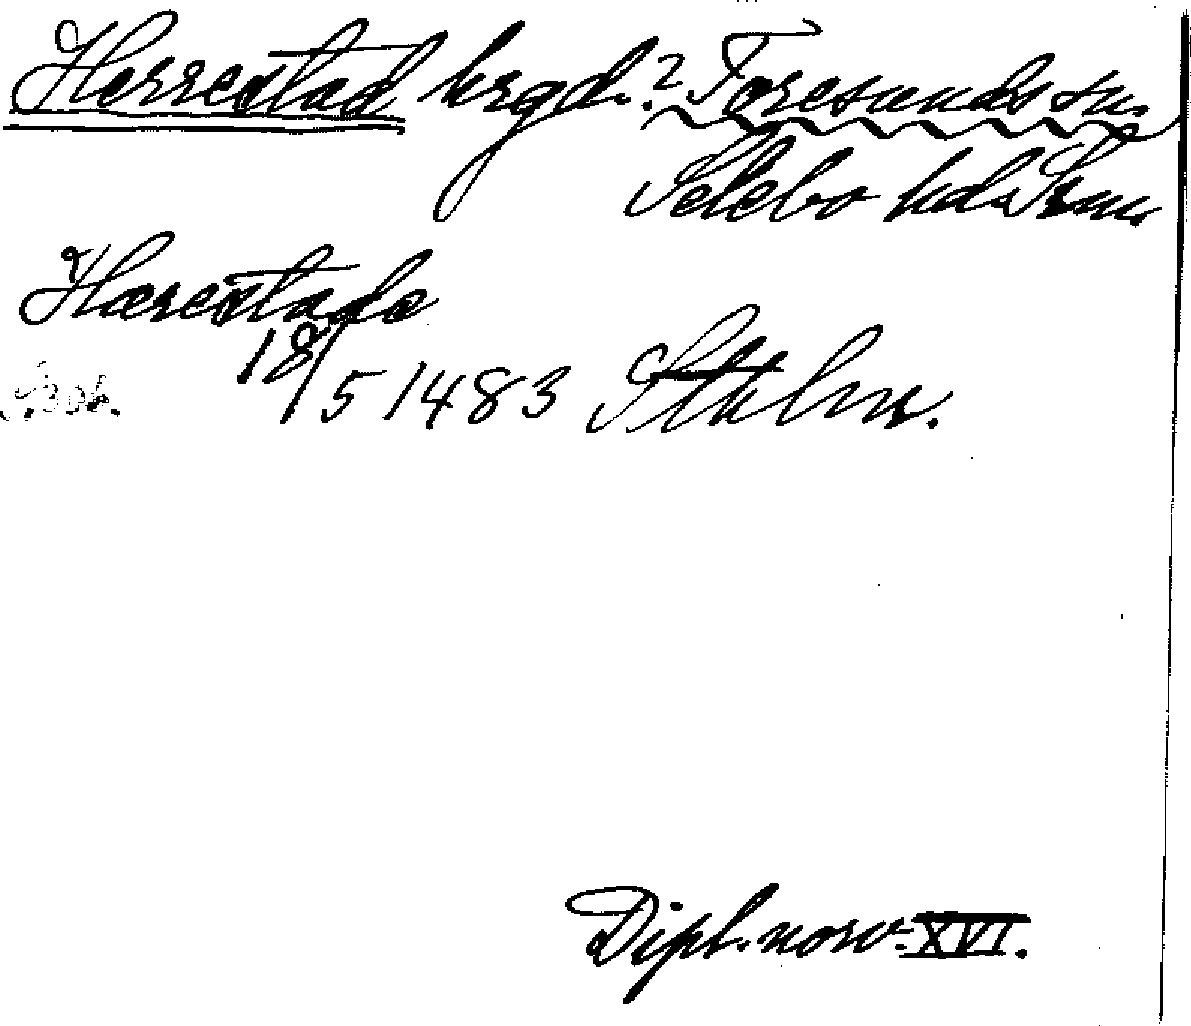 Herrestad hrgd.? Toresunds sn.
Selebo hd. Srm.
Hærestade
18/5 1483 Sthlm.
Dipl. norv. XVI.